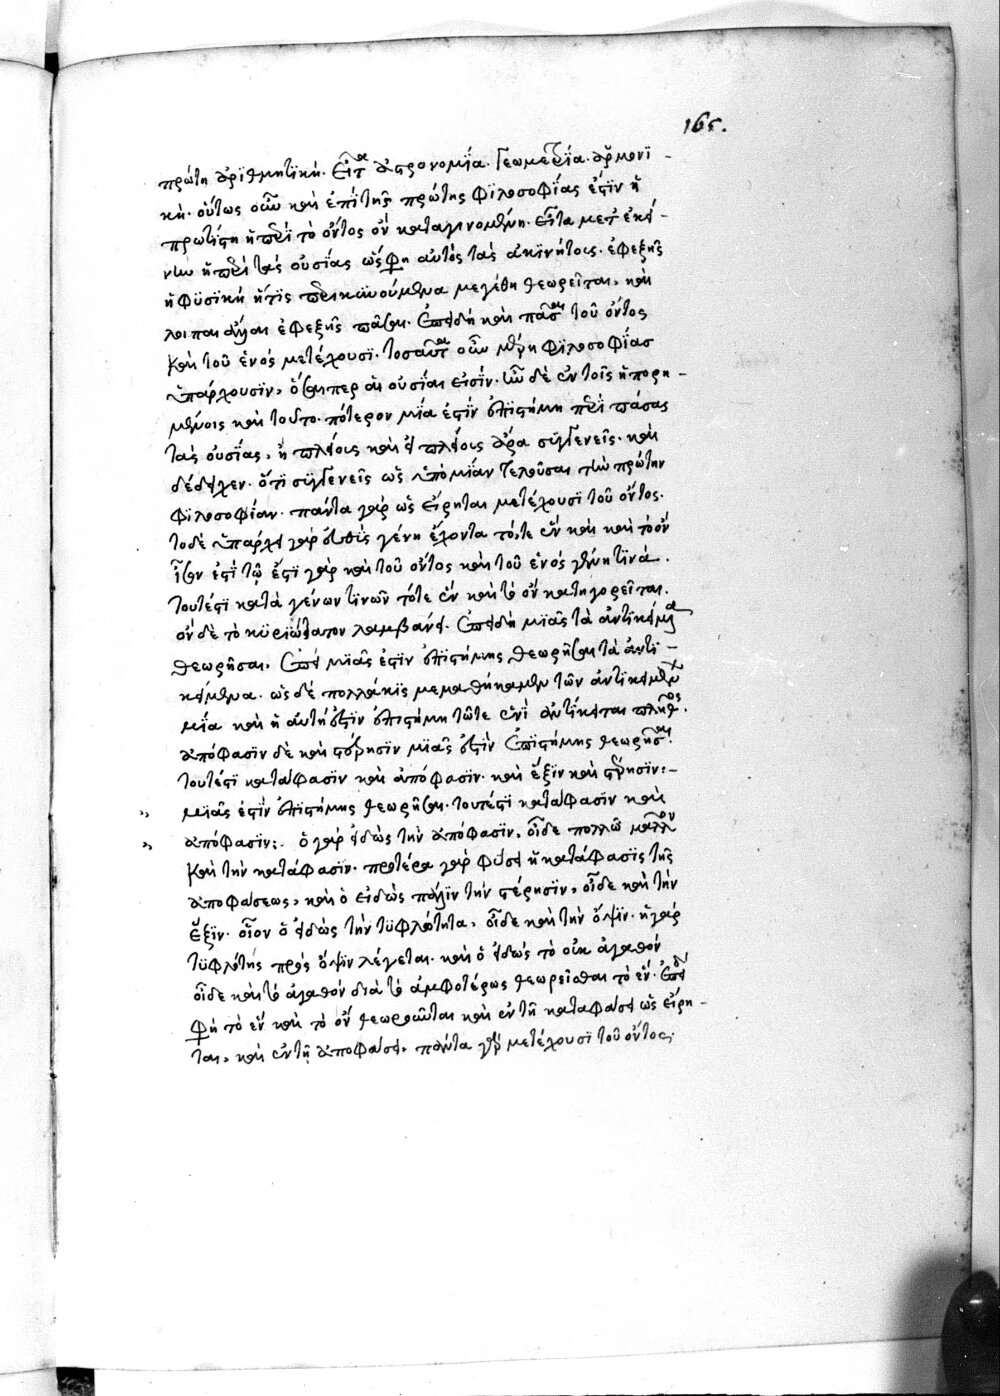 165.
πρώτη ἀριθμητϊκή. εἶτα ἀστρονομΐα. Γεωμετρΐα. ἁρμονϊ-
κή. οὕτως οὖν καὶ ἐπὶ τῆς πρώτης φϊλοσοφΐας ἐστὶν ἡ
πρωτίστη ἡ περὶ τὸ ὄντος ὂν καταγινομένη. εἶτα μετ' ἐκεί-
νην ἡ περὶ τὰς οὐσΐας ὥς φη αὐτὸς τὰς ἀκϊνήτους. ἐφεξῆς
ἡ φϋσϊκὴ ἥτϊς περὶ κϊνούμενα μεγέθη θεωρεῖται, καὶ
λοιπαὶ ἄλλαι ἐφεξῆς πᾶσαι. ἐπειδὴ καὶ πᾶσαι τοῦ ὄντος
καὶ τοῦ ἑνὸς μετέχουσϊ. τοσαῦτα οὖν μέρη φϊλοσοφΐας
ὑπάρχουσϊν, ὅσαι περ αἱ οὐσΐαι εἰσΐν. ἦν δὲ ἐν τοῖς ἠπορη-
μένοις καὶ τοῦτο. πότερον μΐα ἐστὶν ἐπϊστήμη περὶ πάσας
τὰς οὐσΐας, ἢ πλείους καὶ εἰ πλείους ἆρα συγγενεῖς. καὶ
δέδειχεν. ὅτϊ συγγενεῖς ὡς ὑπὸ μΐαν τελοῦσαι τὴν πρώτην
φϊλοσοφΐαν. πάντα γὰρ ὡς εἴρηται μετέχουσϊ τοῦ ὄντος.
τὸ δὲ ὑπάρχει γὰρ εὐθὺς γένη ἔχοντα τό,τε ἓν καὶ καὶ τὸ ὂν
ἴσον ἐστὶ τῷ ἔστϊ γὰρ καὶ τοῦ ὄντος καὶ τοῦ ἑνὸς γένη τϊνά.
τουτέστϊ κατὰ γένων τϊνῶν τότε ἓν καὶ τὸ ὂν κατηγορεῖται.
ὂν δὲ τὸ κϋρϊώτατον λαμβάνει. ἐπειδὴ μϊᾶς τὰ ἀντϊκείμενα
θεωρῆσαι. ἐπεὶ μϊᾶς ἐστὶν ἐπϊστήμης θεωρῆσαι τὰ ἀντϊ-
κείμενα. ὡς δὲ πολλάκϊς μεμαθήκαμεν τῶν ἀντϊκειμένων
μΐα καὶ ἡ αὐτή ἐστϊν ἐπϊστήμη τῶτε ἑνὶ ἀντΐκειται πλῆθος.
ἀπόφασϊν δὲ καὶ στέρησϊν μϊᾶς ἐστὶν ἐπϊστήμης θεωρῆσαι.
τουτέστϊ κατάφασϊν καὶ ἀπόφασϊν. καὶ ἕξϊν καὶ στέρησϊν:-
μϊᾶς ἐστὶν ἐπϊστήμης θεωρῆσαι. τουτέστϊ κατάφασϊν καὶ
ἀπόφασϊν:. ὁ γὰρ εἰδὼς τὴν ἀπόφασϊν, οἶδε πολλῷ μᾶλλον
καὶ τὴν κατάφασϊν. προτέρα γὰρ φύσει ἡ κατάφασϊς τῆς
ἀποφάσεως, καὶ ὁ εἰδὼς πάλϊν τὴν στέρησϊν, οἶδε καὶ τὴν
ἕξϊν. οἷον ὁ εἰδὼς τὴν τϋφλότητα, οἶδε καὶ τὴν ὄψϊν. ἡ γὰρ
τϋφλότης πρὸς ὄψϊν λέγεται. καὶ ὁ εἰδὼς τὸ οὐκ ἀγαθὸν
οἶδε καὶ τὸ ἀγαθὸν διὰ τὸ ἀμφοτέρως θεωρεῖσθαι τὸ ἕν. ἐπειδὴ
φη τὸ ἓν καὶ τὸ ὂν θεωροῦνται καὶ ἐν τῇ καταφάσει ὡς εἴρη-
ται, καὶ ἐν τῇ ἀποφάσει. πάντα γὰρ μετέχουσϊ τοῦ ὄντος.